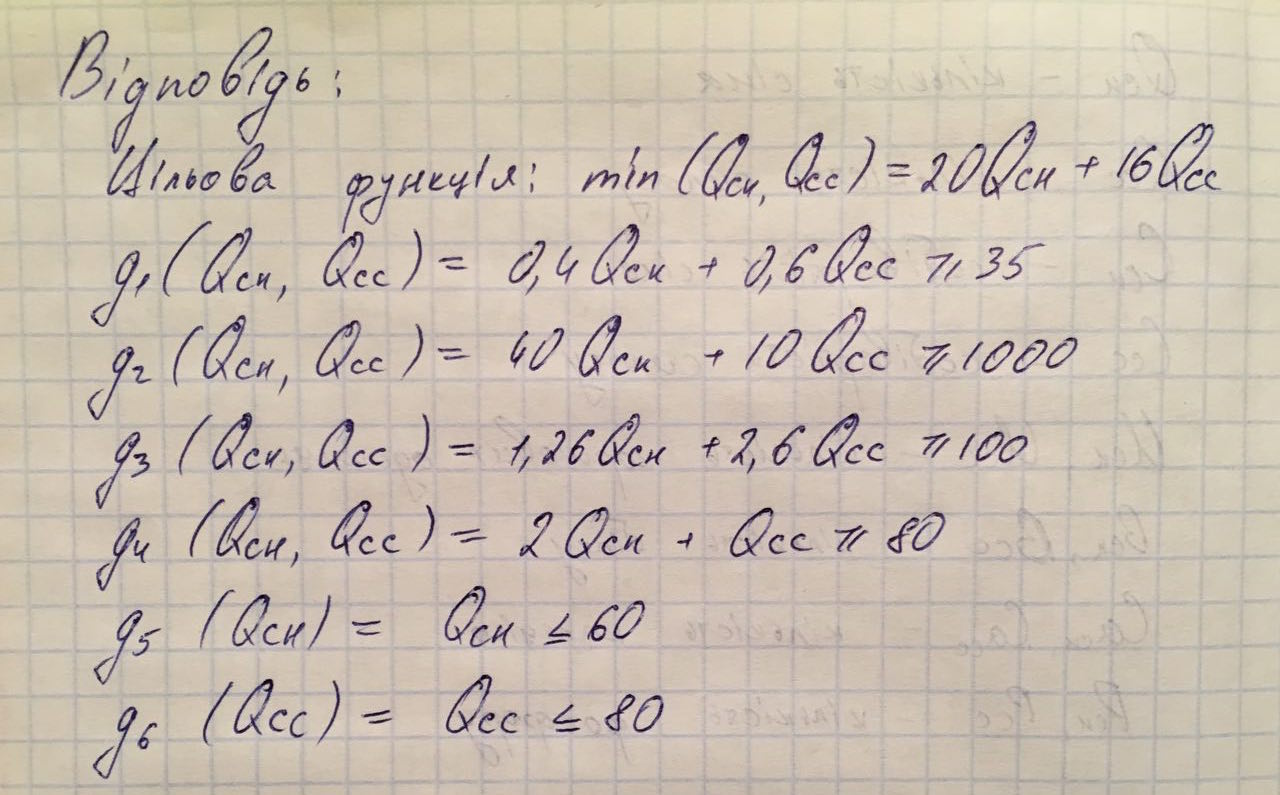 Відповідь:
Цільова функція: min (Qсн, Qсс) = 20Qсн + 16Qсс
g1 (Qсн, Qсс) = 0,4Qсн + 0,6Qсс ≥ 35
g2 (Qсн, Qсс) = 40Qсн + 10Qсс ≥ 1000
g3 (Qсн, Qсс) = 1,26Qсн + 2,6Qсс ≥ 100
g4 (Qсн, Qсс) = 2Qсн + Qсс ≥ 80
g5 (Qсн) = Qсн ≤ 60
g6 (Qсс) = Qсс ≤ 80